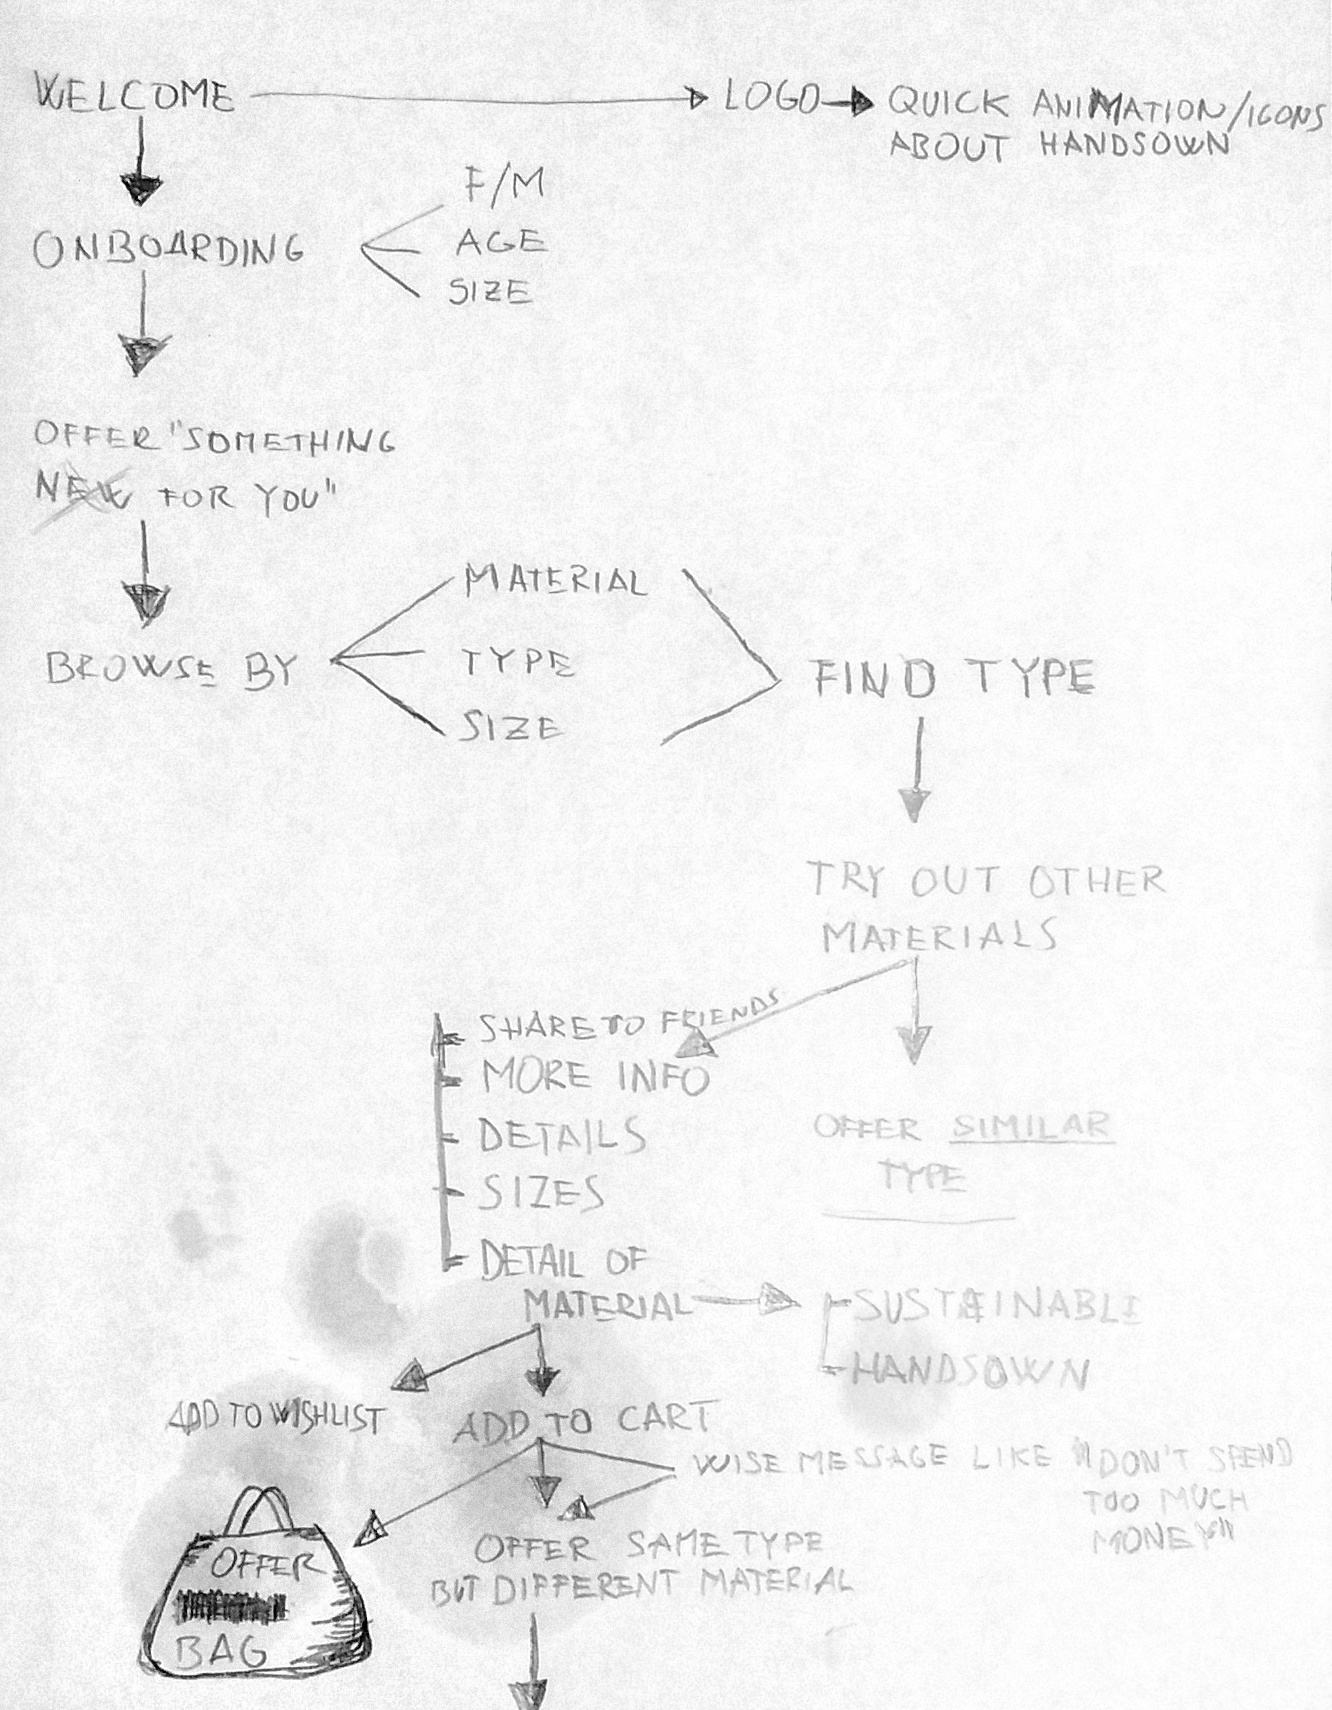 WELCOME
LOGO
QUICK ANIMATION/ICONS
ABOUT HANDSOWN
ONBOARDING
F/M
AGE
SIZE
OFFER "SOMETHING
NEW FOR YOU"
BROWSE BY
MATERIAL
TYPE
SIZE
FIND TYPE
TRY OUT OTHER
MATERIALS
SHARE TO FRIENDS
MORE INFO
DETAILS
SIZES
DETAIL OF
MATERIAL
OFFER SIMILAR
TYPE
SUSTAINABLE
HANDSOWN
ADD TO WISHLIST
ADD TO CART
WISE MESSAGE LIKE "DON'T SPEND
TOO MUCH
MONEY"
OFFER
BAG
OFFER SAME TYPE
BUT DIFFERENT MATERIAL